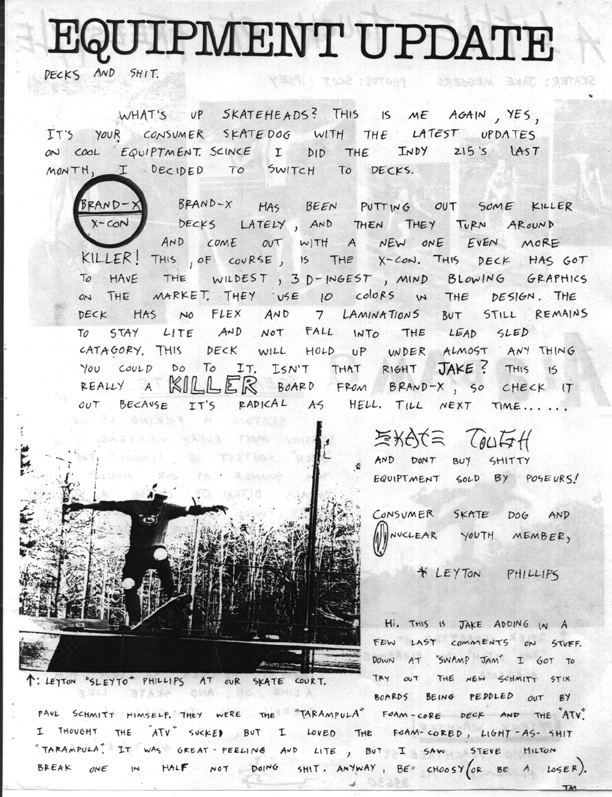 EQUIPMENT UPDATE
DECKS AND SHIT.
WHAT'S UP SKATEHEADS? THIS IS ME AGAIN, YES,
IT'S YOUR CONSUMER SKATEDOG WITH THE LATEST UPDATES
ON COOL EQUIPTMENT. SCINCE I DID THE INDY 215'S LAST
MONTH, I DECIDED TO SWITCH TO DECKS.
BRAND-X
X-CON
BRAND-X HAS BEEN PUTTING OUT SOME KILLER
DECKS LATELY, AND THEN THEY TURN AROUND
AND COME OUT WITH A NEW ONE EVEN MORE
KILLER! THIS, OF COURSE, IS THE X-CON. THIS DECK HAS GOT
TO HAVE THE WILDEST, 3D-INGEST, MIND BLOWING GRAPHICS
ON THE MARKET. THEY USE 10 COLORS IN THE DESIGN. THE
DECK HAS NO FLEX AND 7 LAMINATIONS BUT STILL REMAINS
TO STAY LITE AND NOT FALL INTO THE LEAD SLED
CATAGORY. THIS DECK WILL HOLD UP UNDER ALMOST ANY THING
YOU COULD DO TO IT. ISN'T THAT RIGHT JAKE? THIS IS
REALLY A KILLER BOARD FROM BRAND-X, SO CHECK IT
OUT BECAUSE IT'S RADICAL AS HELL. TILL NEXT TIME......
SKATE TOUGH
AND DONT BUY SHITTY
EQUIPTMENT SOLD BY POSEURS!
CONSUMER SKATE DOG AND
NUCLEAR YOUTH MEMBER,
* LEYTON PHILLIPS
↑: LEYTON "SLEYTO" PHILLIPS AT OUR SKATE COURT.
HI. THIS IS JAKE ADDING IN A
FEW LAST COMMENTS ON STUFF.
DOWN AT "SWAMP JAM" I GOT TO
TRY OUT THE NEW SCHMITT STIX
BOARDS BEING PEDDLED OUT BY
PAUL SCHMITT HIMSELF. THEY WERE THE "TARAMPULA" FOAM-CORE DECK AND THE "ATV."
I THOUGHT THE "ATV" SUCKED BUT I LOVED THE FOAM-CORED, LIGHT-AS-SHIT
"TARAMPULA". IT WAS GREAT-FEELING AND LITE, BUT I SAW STEVE HILTON
BREAK ONE IN HALF NOT DOING SHIT. ANYWAY, BE CHOOSY (OR BE A LOSER).
TM